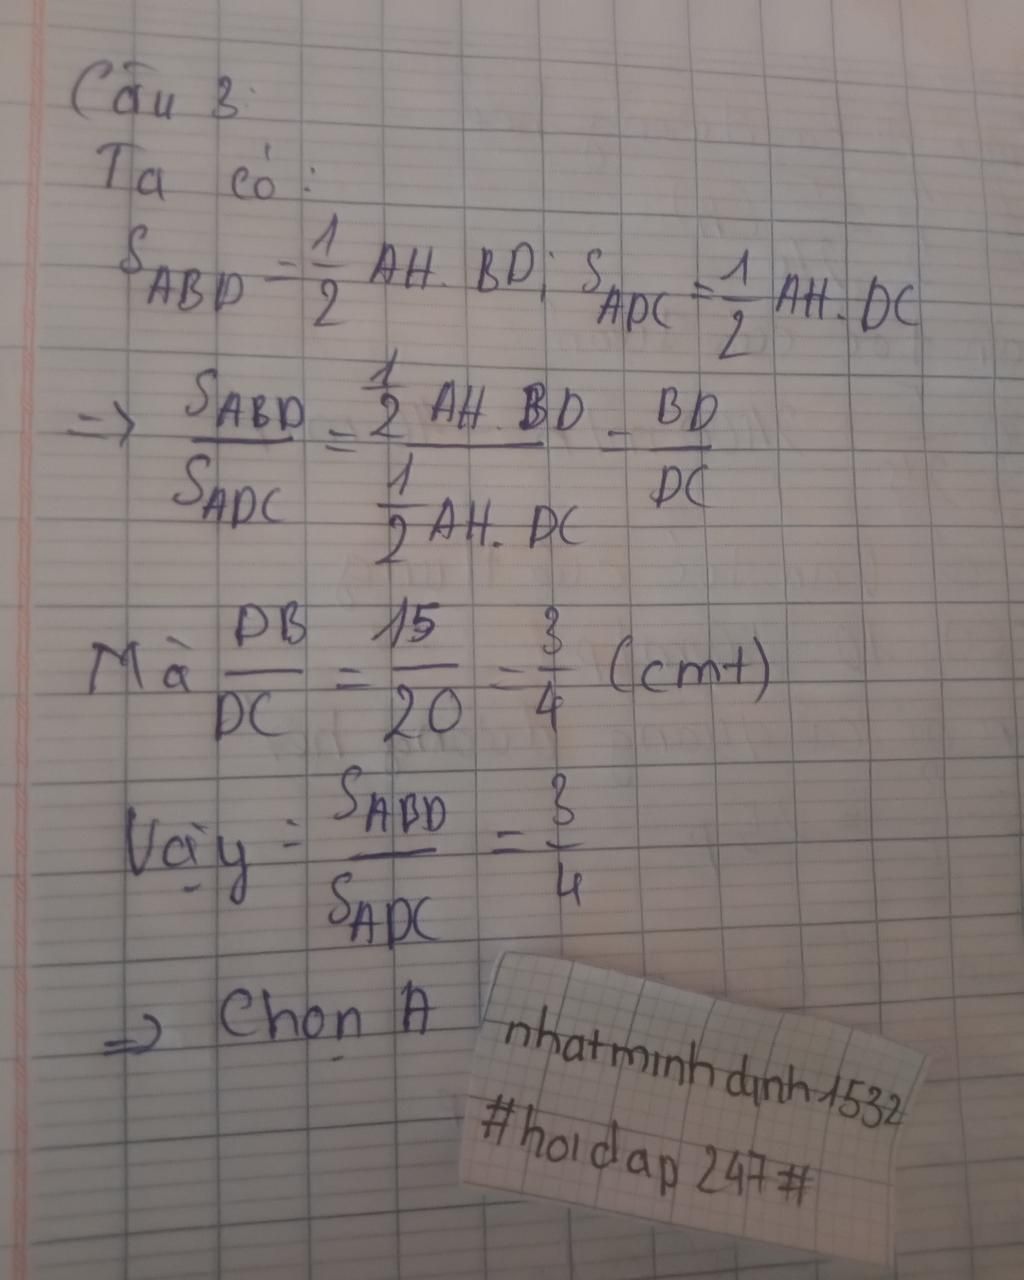 Câu 3:
Ta có:
S_ABD = 1/2 AH. BD; S_ADC = 1/2 AH. DC
=> S_ABD / S_ADC = (1/2 AH. BD) / (1/2 AH. DC) = BD / DC
Mà DB / DC = 15 / 20 = 3 / 4 (cmt)
Vậy: S_ABD / S_ADC = 3 / 4
=> Chọn A
nhatminhdinh1532
#hoidap247#